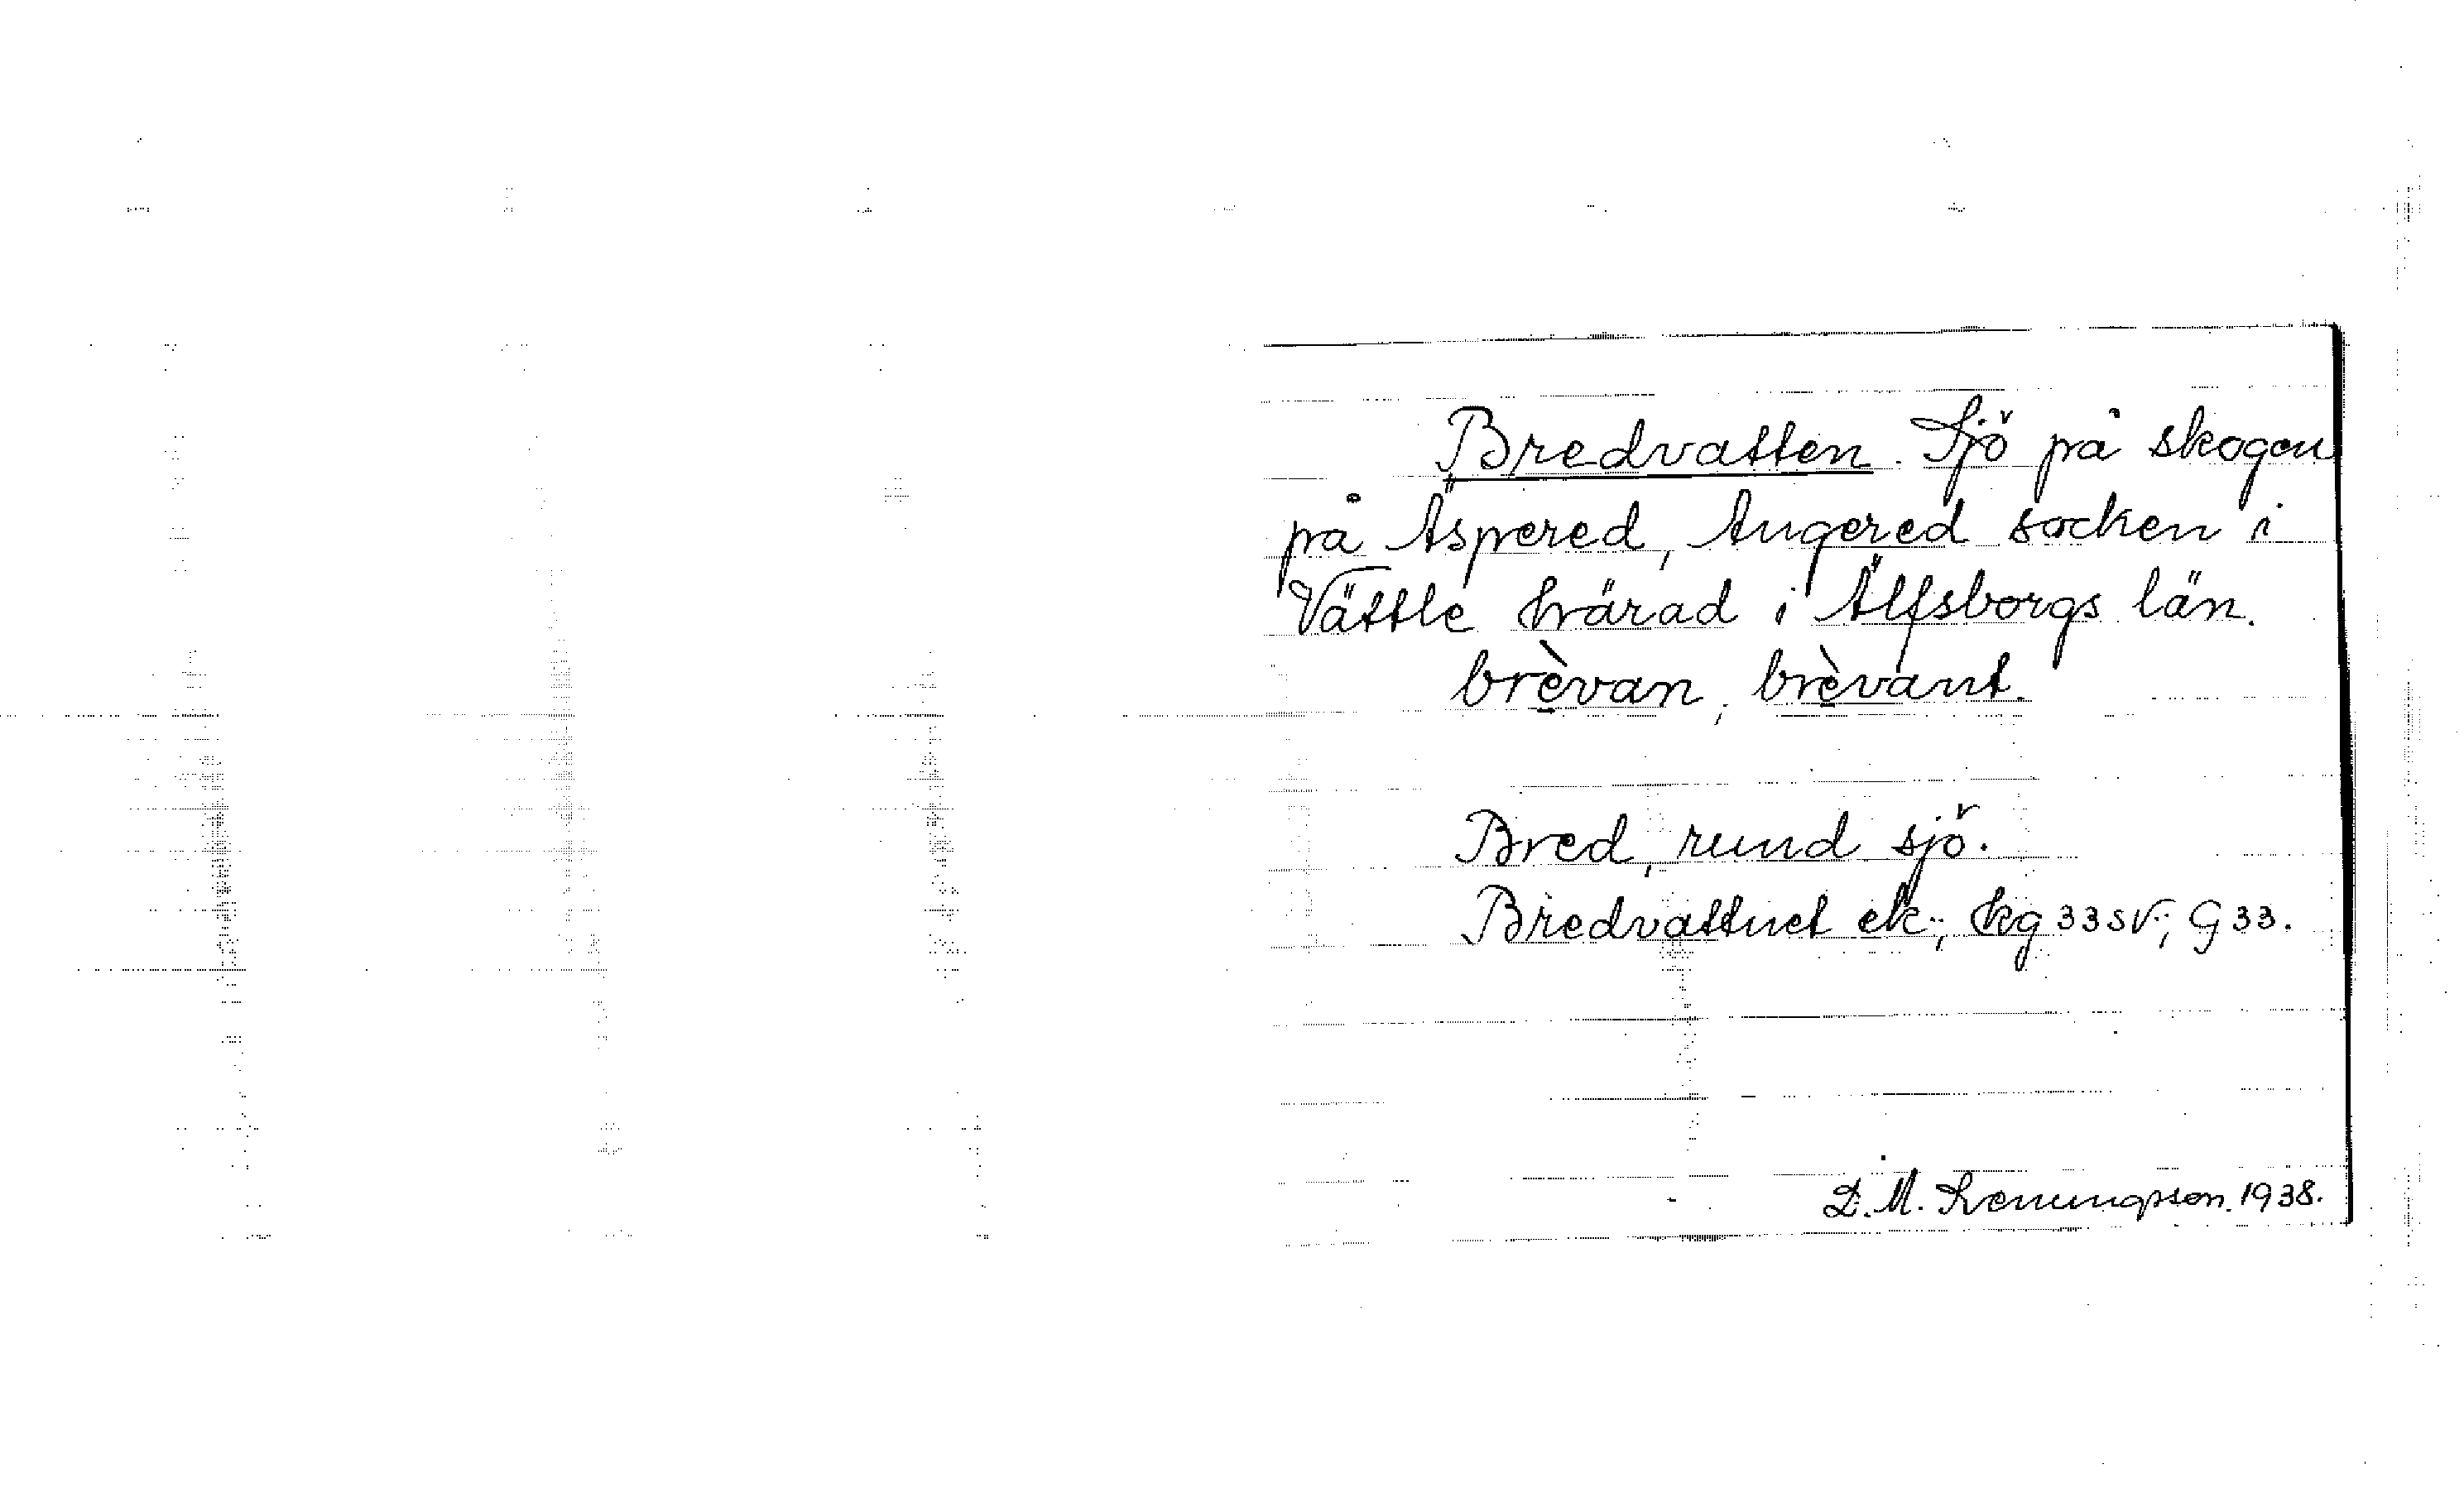 Bredvatten. Sjö på skogen
på Äspered, Angered socken i
Vättle härad i Älfsborgs län.
brèvan, brèvant.
Bred, rund sjö.
Bredvattnet ek; kg 33 SV; G 33.
D. M. 1938.